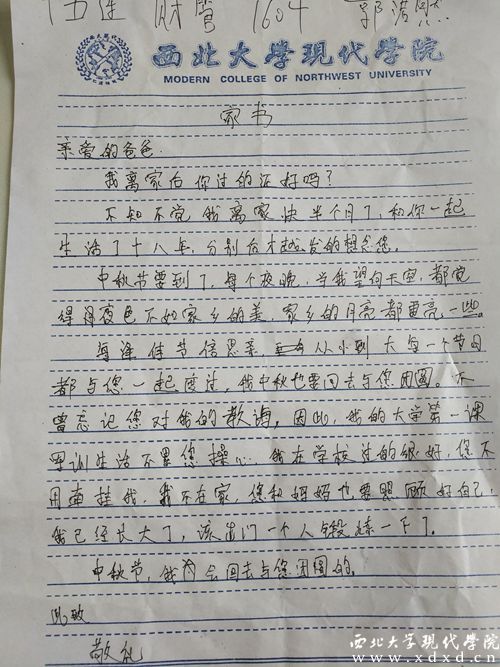 伍连 财管 1604 郭浩然
西北大學現代學院
MODERN COLLEGE OF NORTHWEST UNIVERSITY
家书
亲爱的爸爸
我离家后你过的还好吗?
不知不觉我离家快半个月了,和你一起
生活了十八年,分别后才越发的想念您。
中秋节要到了,每个夜晚,当我望向天空,都觉
得夜色不如家乡的美,家乡的月亮都要亮一些。
每逢佳节倍思亲,从小到大每一个节日
都与您一起度过,我中秋也要回去与您团圆。不
曾忘记您对我的教诲,因此,我的大学第一课
军训生活不累您操心,我在学校过的很好,您不
用牵挂我,我不在家,您和妈妈也要照顾好自己,
我已经长大了,该出门一个人锻炼一下了。
中秋节,我会回去与您团圆的。
此致
敬礼
西北大学现代学院
www.xdxd.cn